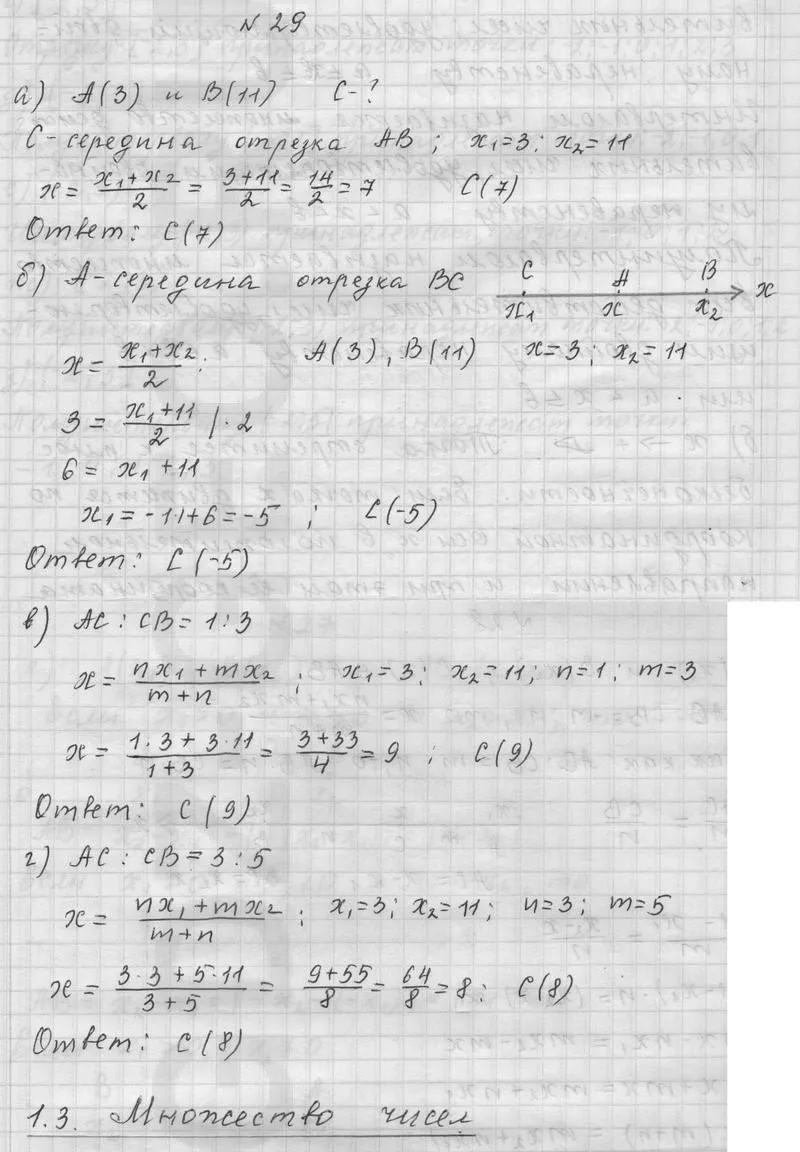 N 29
а) A(3) и B(11) C-?
C-середина отрезка AB; x₁=3; x₂=11
x = (x₁+x₂)/2 = (3+11)/2 = 14/2 = 7 C(7)
Ответ: C(7)
б) A-середина отрезка BC
C A B
x₁ x x₂ x
x = (x₁+x₂)/2; A(3), B(11) x=3; x₂=11
3 = (x₁+11)/2 |·2
6 = x₁+11
x₁ = -11+6 = -5; C(-5)
Ответ: C(-5)
в) AC : CB = 1 : 3
x = (nx₁+mx₂)/(m+n); x₁=3; x₂=11; n=1; m=3
x = (1·3+3·11)/(1+3) = (3+33)/4 = 9; C(9)
Ответ: C(9)
г) AC : CB = 3 : 5
x = (nx₁+mx₂)/(m+n); x₁=3; x₂=11; n=3; m=5
x = (3·3+5·11)/(3+5) = (9+55)/8 = 64/8 = 8; C(8)
Ответ: C(8)
1.3. Множество чисел